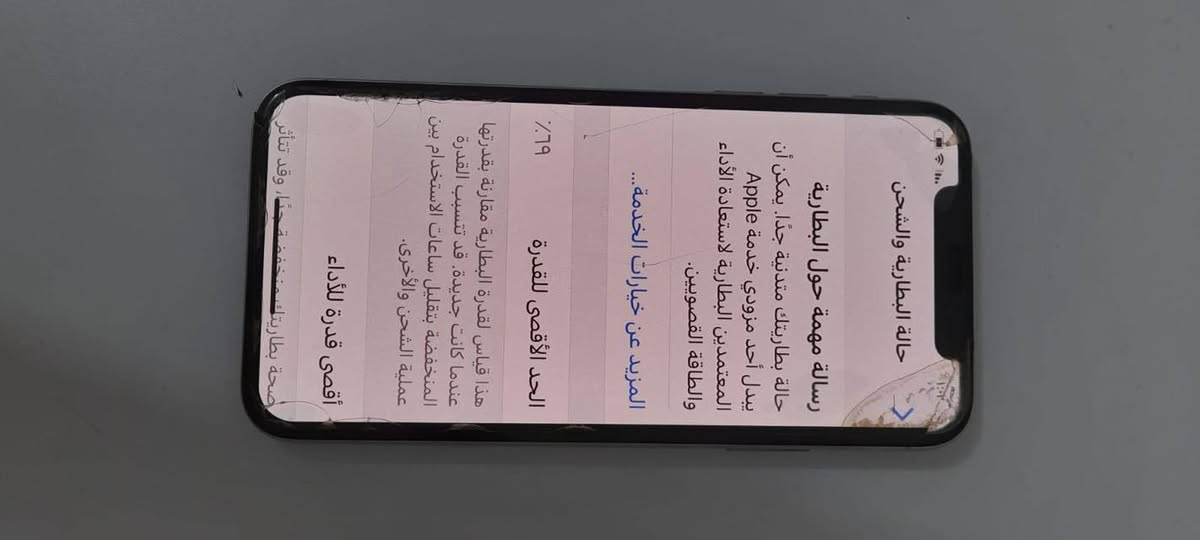 حالة البطارية والشحن
رسالة مهمة حول البطارية
حالة بطاريتك متدنية جدًا. يمكن أن
يبدل أحد مزودي خدمة Apple
المعتمدين البطارية لاستعادة الأداء
والطاقة القصويين.
المزيد عن خيارات الخدمة...
الحد الأقصى للقدرة ٦٩٪
هذا قياس لقدرة البطارية مقارنة بقدرتها
عندما كانت جديدة. قد تتسبب القدرة
المنخفضة بتقليل ساعات الاستخدام بين
عملية الشحن والأخرى.
أقصى قدرة للأداء
صحة بطاريتك منخفضة جدًا، وقد تتأثر